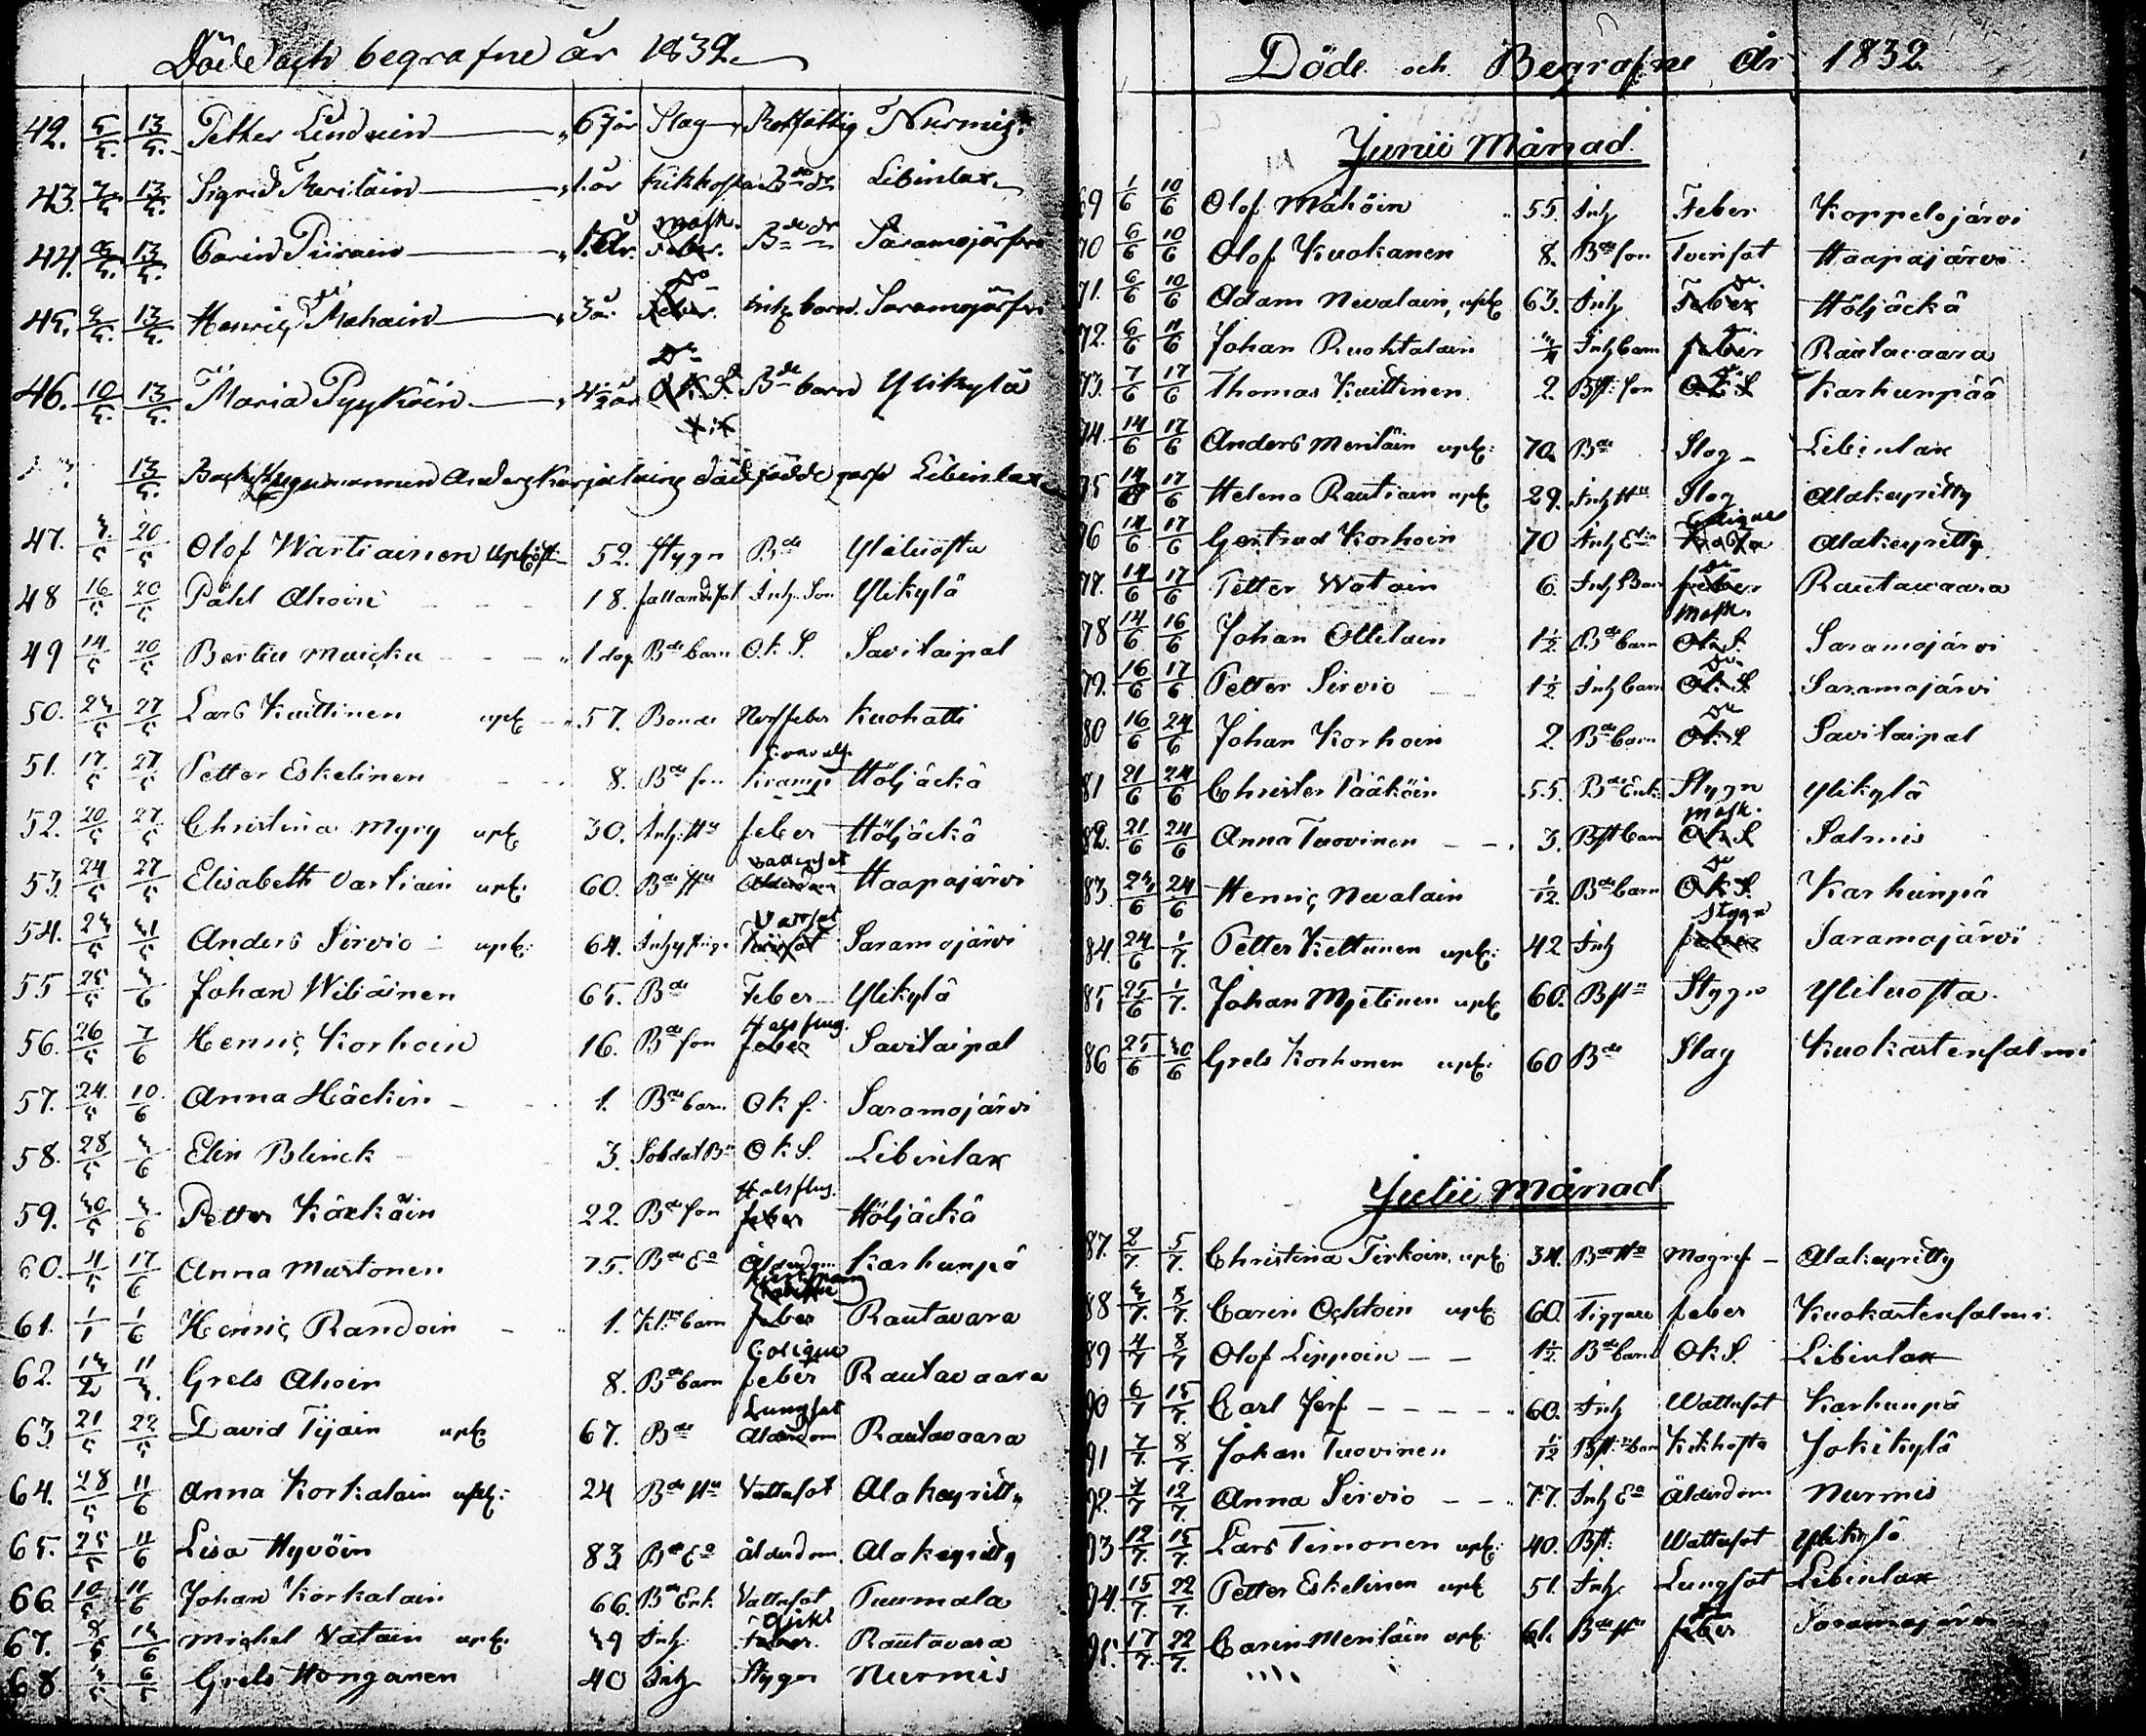 Döde och begrafne år 1832
42. 5/5. 13/5. Petter 67 år Slag Rotfattig Nurmis
43. 13/5. Sigrid Meriläin 1. år Kikhosta Bde dr Libinlax
44. 13/5. Carin Piirain 1. År. Mask. Feber. Bde dr Saramojärfvi
45. 13/5. Henric Mahain 3 år Do Feber. Inh barn. Saramojärfvi
46. 10/5. 13/5. Maria Pyyköin 4½ år Do O.K.S. Bde barn Ylikylä
13/5. Anders Karjalains dödfödde Libinlax
47. 20/5 Olof Wartiainen 52. Stygn Bde Yliluosta
48 16/5 20/5 Påhl Ahoin 18. fallandesot Inh. Son Ylikylä
49 14/5 20/5 Bertha 1 dag Bde barn O.K.S. Savilaipal
50. 23/5 27/5 Lars Kuittinen upk 57. Bonde Nerffeber Kuohatti
51. 17/5 27/5 Petter Eskelinen 8. Bde son Kramp Höljäckä
52. 20/5 27/5 Christina Myry upk 30. Inh. Hu feber Höljäckä
53. 24/5 27/5 Elisabeth Vartiain upk: 60. Bde Hu Ålderdom Haapajärvi
54. 23/5 31/5 Anders Sirvio upk: 64. Saramojärvi
55 25/5 3/6 Johan Wiliäinen 65. Bde Feber Ylikylä
56. 26/5 7/6 Henric Korhoin 16. Bde son Halsflus. feber Savilaipal
57. 24/5 10/6 Anna Häckin 1. Bde barn O K S. Saramojärvi
58. 28/5 3/6 Elin Blinck 3. Soldat Bn O K S. Libinlax
59. 30/5 3/6 Petter Kärkäin 22. Bde son Halsflus. feber Höljäckä
60. 17/6 Anna Martonen 75. Bde Ea Ålderdom Karhunpä
61. 1/1 1/6 Henric Randoin 1. barn feber Rautavara
62. 13/2 11/3. Grels Ahoin 8. Bde barn Colique feber Rautavaara
63. 21/5 22/5 David Tijain upk 67. Bde Lungsot Ålderdom Rautavaara
64. 28/5 11/6 Anna Korkalain upk: 24 Bde Hu Vattusot Alakeyritty
65. 25/5 11/6 Lisa Hyvöin 83 Bde Ea ålderdom. Alakeyritty
66. 10/5 11/6 Johan Korkalain 66. Bde Enk. Vattusot Puumala
67. 8/5 13/6 Michel Vatain upk: 39 Inh Gikt Feber. Rautavara
68 3/5 6/5 Grels Honganen 40 Inh Stygn Nurmis
Döde och Begrafne År 1832
Junii Månad.
69 1/6 10/6 Olof Mähöin 55. Inh Feber Koppelojärvi
70 6/6 10/6 Olof Kuokanen 8. Bde son Tvinsot Haapajärvi
71. 6/6 10/6 Adam Nevalain, upk 63. Inh Do Feber Höljäckä
72. 6/6 11/6 Johan Ruohtalain Inh barn Do feber Rautavaara
73. 7/6 17/6 Thomas Kuittinen 2. Bst: son O.K.S Karhunpää
74. 14/6 17/6 Anders Meriläin upk: 70. Bde Slag Libinlax
75 14/6 17/6 Helena Rautiain upk 29. Inh Hu Slag Alakeyritty
76 14/6 17/6 Gertrud Korhoin 70 Inh Colique Alakeyritty
77. 14/6 17/6 Petter Watain 6. Inh Barn Do feber Rautavaara
78 14/6 16/6 Johan Ollilain 1½ Bde barn Mask. O.K.S. Saramojärvi
79. 16/6 17/6 Petter Sirvio 1½ Inh barn Do O.K.S Saramojärvi
80 16/6 24/6 Johan Korhoin 2. Bde barn Do O.K.S Savilaipal
81 21/6 24/6 Christer Pääköin 55. Bde Enk: Stygn Ylikylä
82. 21/6 24/6 Anna Tuovinen 3. Bst barn Mask. O.K.S Salmis
83. 23/6 24/6 Henric Nevalain 1/12. Bde barn Do O.K.S. Karhunpä
84. 24/6 1/7. Petter Keltunen upk: 42 Inh Stygn feber Saramojärvi
85 25/6 1/7. Johan upk 60. Bstn Stygn Yliluosta.
86 25/6 30/6 Grels Korhonen upk: 60 Bde Slag Kuokastensalmi
Julii Månad
87. 2/7. 5/7. Christina Tirkoin, upk: 34. Bde Hu Magref Alakeyritty
88 3/7. 8/7. Carin Ochtoin upk: 60. Tiggare feber Kuokastensalmi.
89 4/7 8/7 Olof Lippoin 1½ Bde barn O.K.S. Libinlax
90 6/7 15/7. Carl Jerf 60. Inh Wattusot Karhunpä
91 7/7. 8/7. Johan Tuovinen 1/12 Bst: barn Kikhosta Jokikylä
92. 7/7 12/7. Anna Sirvio 77. Inh Ea Ålderdom Nurmis
93 12/7. 15/7. Lars Timonen upk: 40. Bst: Wattusot Ylikylä
94. 15/7. 22/7. Petter Eskelinen upk 51. Inh. Lungsot Libinlax
95. 17/7. 22/7. Carin Meriläin upk: 61. Bde Hu feber Saramojärvi